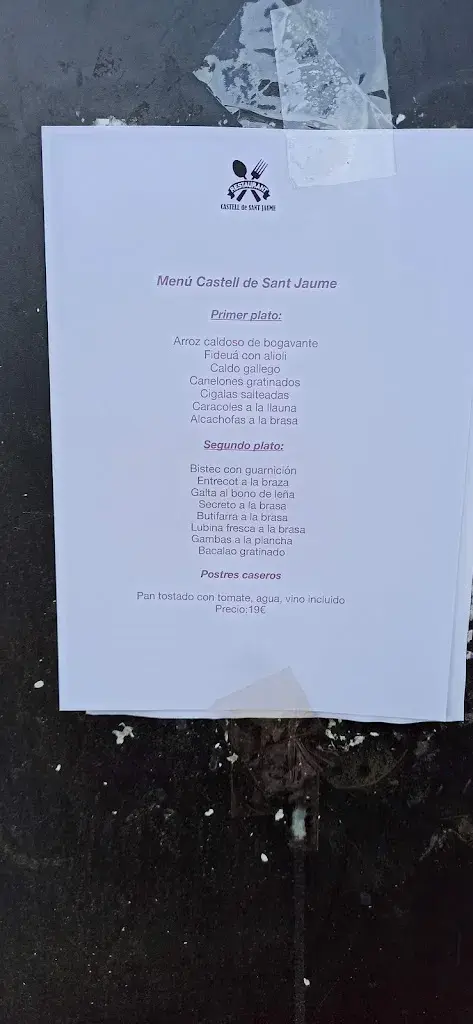 RESTAURANT
CASTELL de SANT JAUME
Menú Castell de Sant Jaume
Primer plato:
Arroz caldoso de bogavante
Fideuá con alioli
Caldo gallego
Canelones gratinados
Cigalas salteadas
Caracoles a la llauna
Alcachofas a la brasa
Segundo plato:
Bistec con guarnición
Entrecot a la braza
Galta al bono de leña
Secreto a la brasa
Butifarra a la brasa
Lubina fresca a la brasa
Gambas a la plancha
Bacalao gratinado
Postres caseros
Pan tostado con tomate, agua, vino incluido
Precio:19€